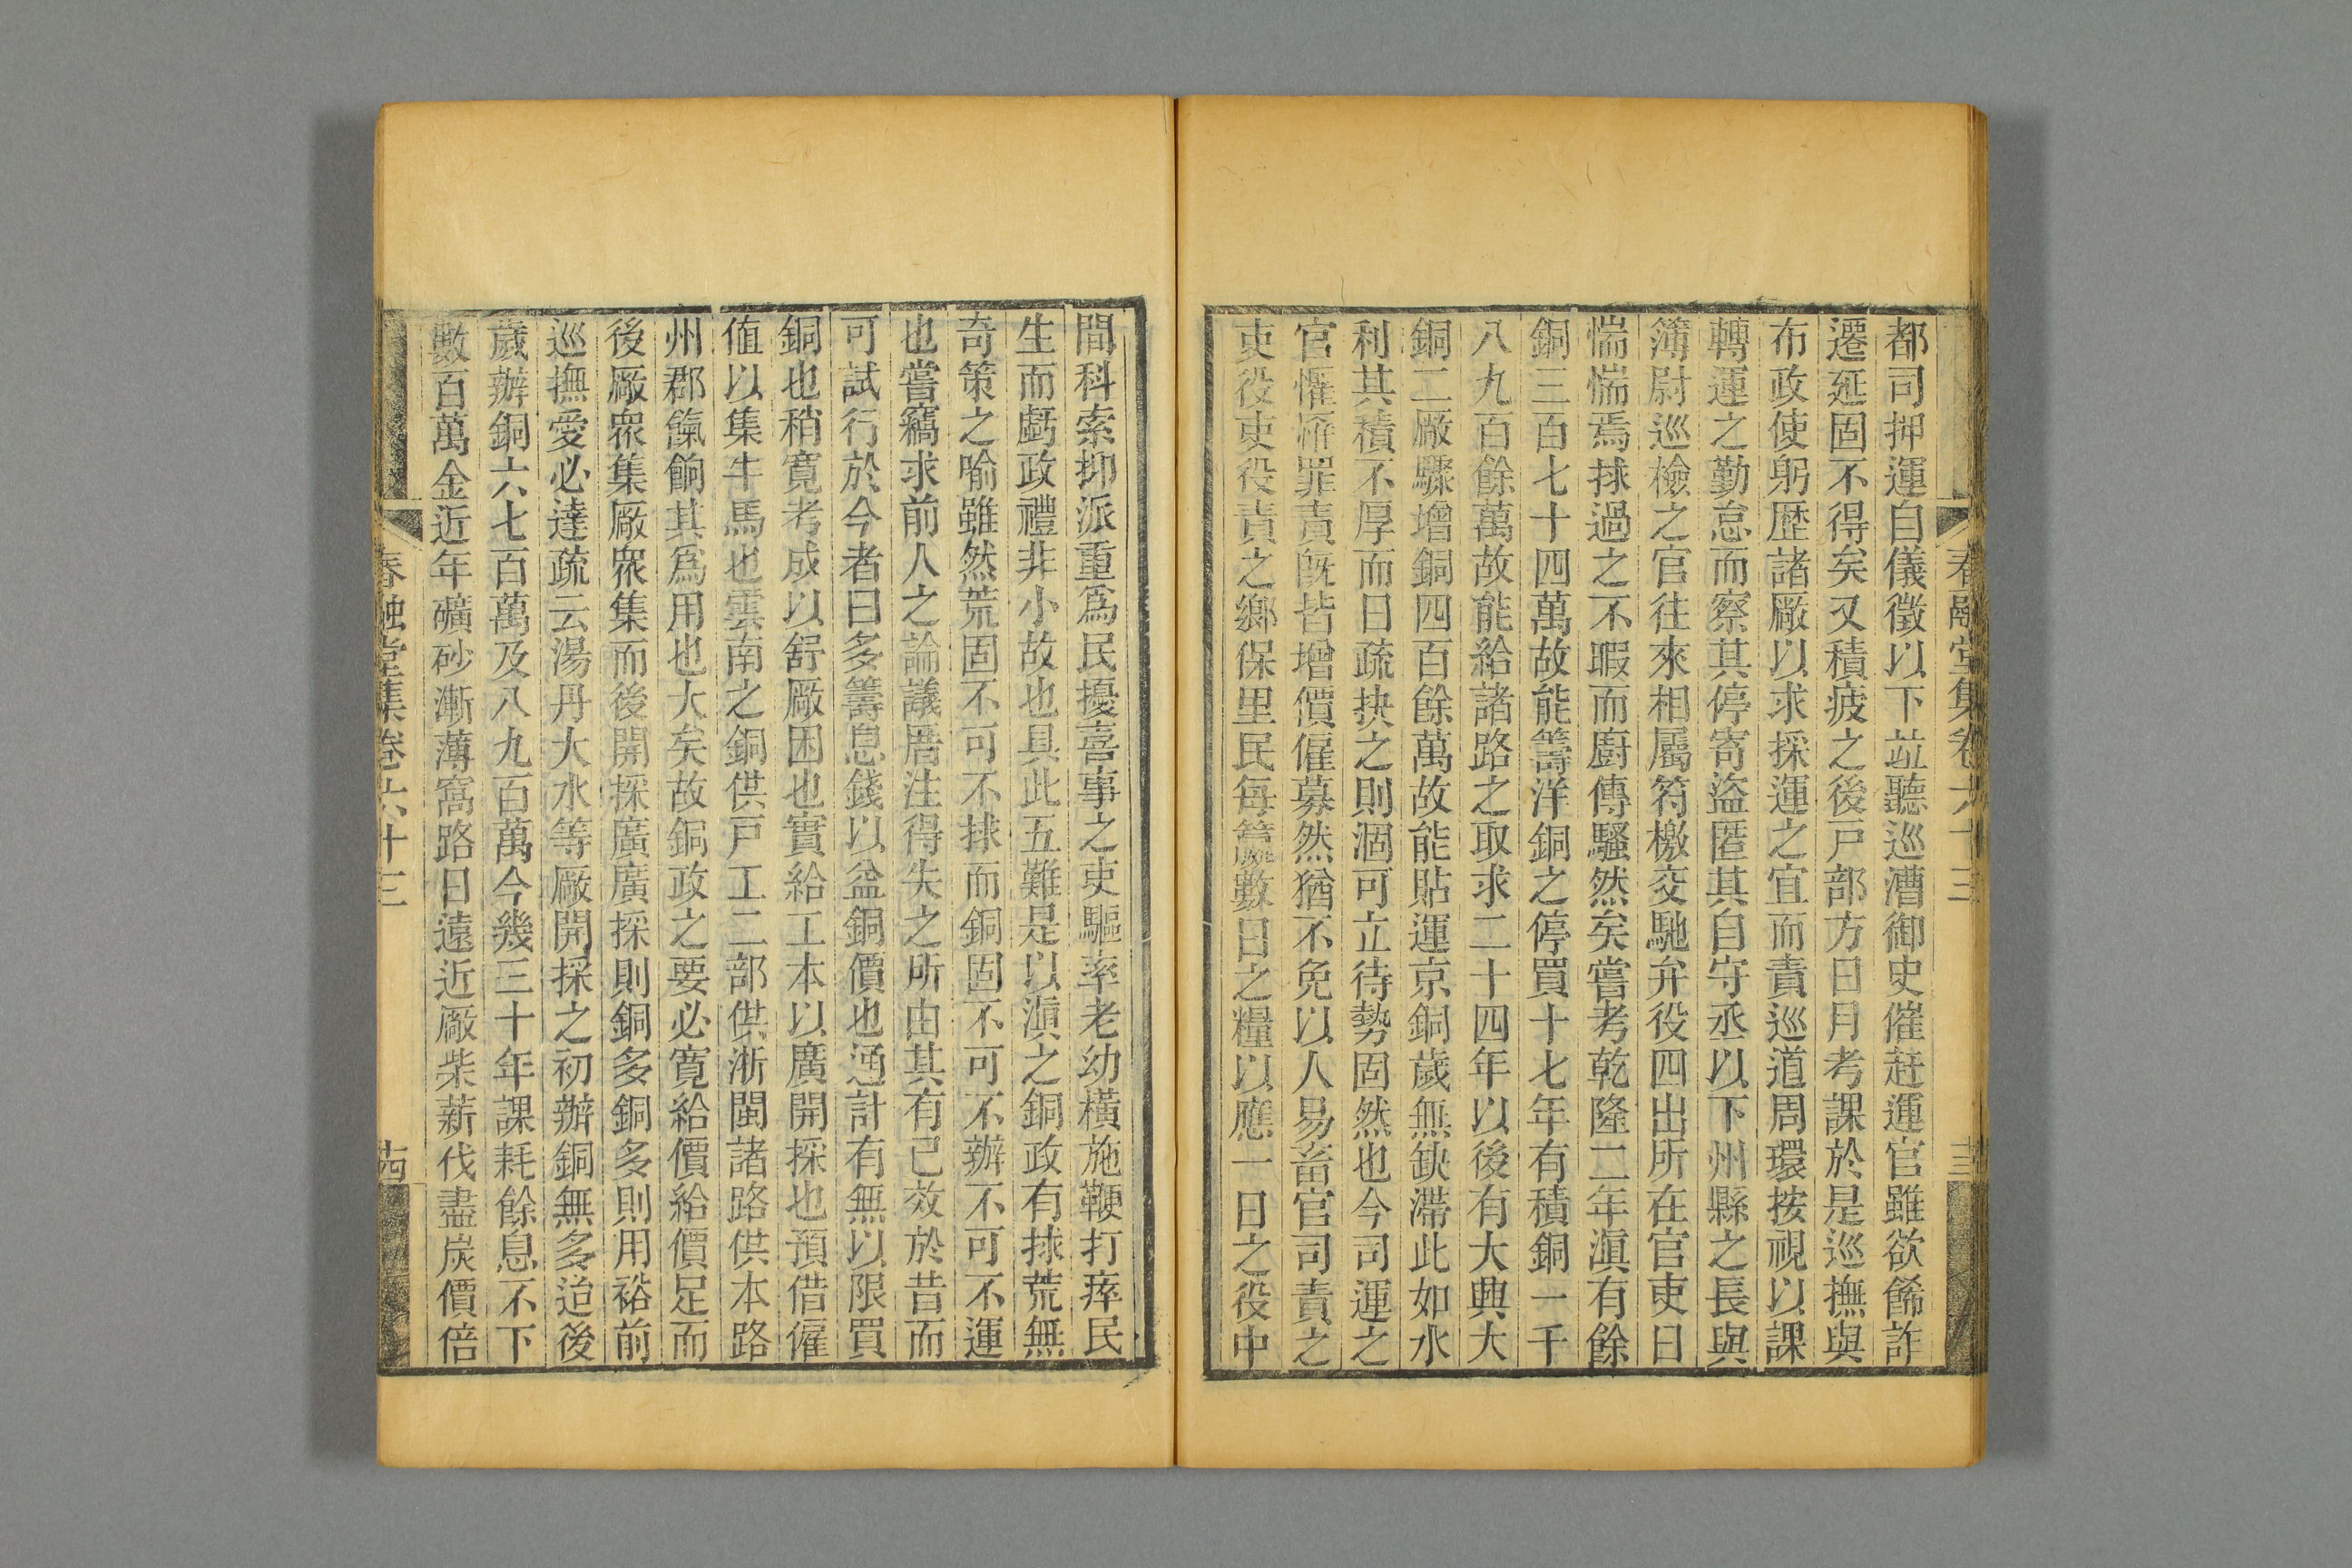 春融堂集卷六十三
都司押運自儀徵以下竝聽巡漕御史催趕運官雖欲餙詐
遷延固不得矣又積疲之後戸部方日月考課於是巡撫與
布政使躬歴諸厰以求採運之宜而責巡道周環按視以課
轉運之勤怠而察其停寄盜匿其自守丞以下州縣之長與
簿尉巡檢之官往來相屬符檄交馳弁役四出所在官吏日
惴惴焉捄過之不暇而廚傳騷然矣嘗考乾隆二年滇有餘
銅三百七十四萬故能籌洋銅之停買十七年有積銅一千
八九百餘萬故能給諸路之取求二十四年以後有大興大
銅二厰驟增銅四百餘萬故能貼運京銅歲無缺滯此如水
利其積不厚而日疏抉之則涸可立待勢固然也今司運之
官懼罹罪責旣皆增價僱募然猶不免以人易畜官司責之
吏役吏役責之鄉保里民每簏數日之糧以應一日之役中
間科索抑派重爲民擾喜事之吏驅率老幼橫施鞭打瘁民
生而虧政禮非小故也具此五難是以滇之銅政有捄荒無
奇策之喻雖然荒固不可不捄而銅固不可不辦不可不運
也嘗竊求前人之論議厝注得失之所由其有已效於昔而
可試行於今者曰多籌息錢以益銅價也通計有無以限買
銅也稍寛考成以舒厰困也實給工本以廣開採也預借僱
値以集牛馬也雲南之銅供戸工二部供浙閩諸路供本路
州郡餼餉其爲用也大矣故銅政之要必寛給價給價足而
後厰衆集厰衆集而後開採廣廣採則銅多銅多則用裕前
巡撫愛必達疏云湯丹大水等厰開採之初辦銅無多迨後
歲辦銅六七百萬及八九百萬今幾三十年課耗餘息不下
數百萬金近年礦砂漸薄窩路日遠近厰柴薪伐盡炭價倍
春融堂集卷六十三